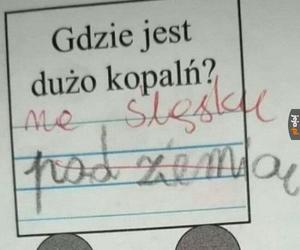 Gdzie jest
dużo kopalń?
na śląsku
pod ziemią
jeja.pl